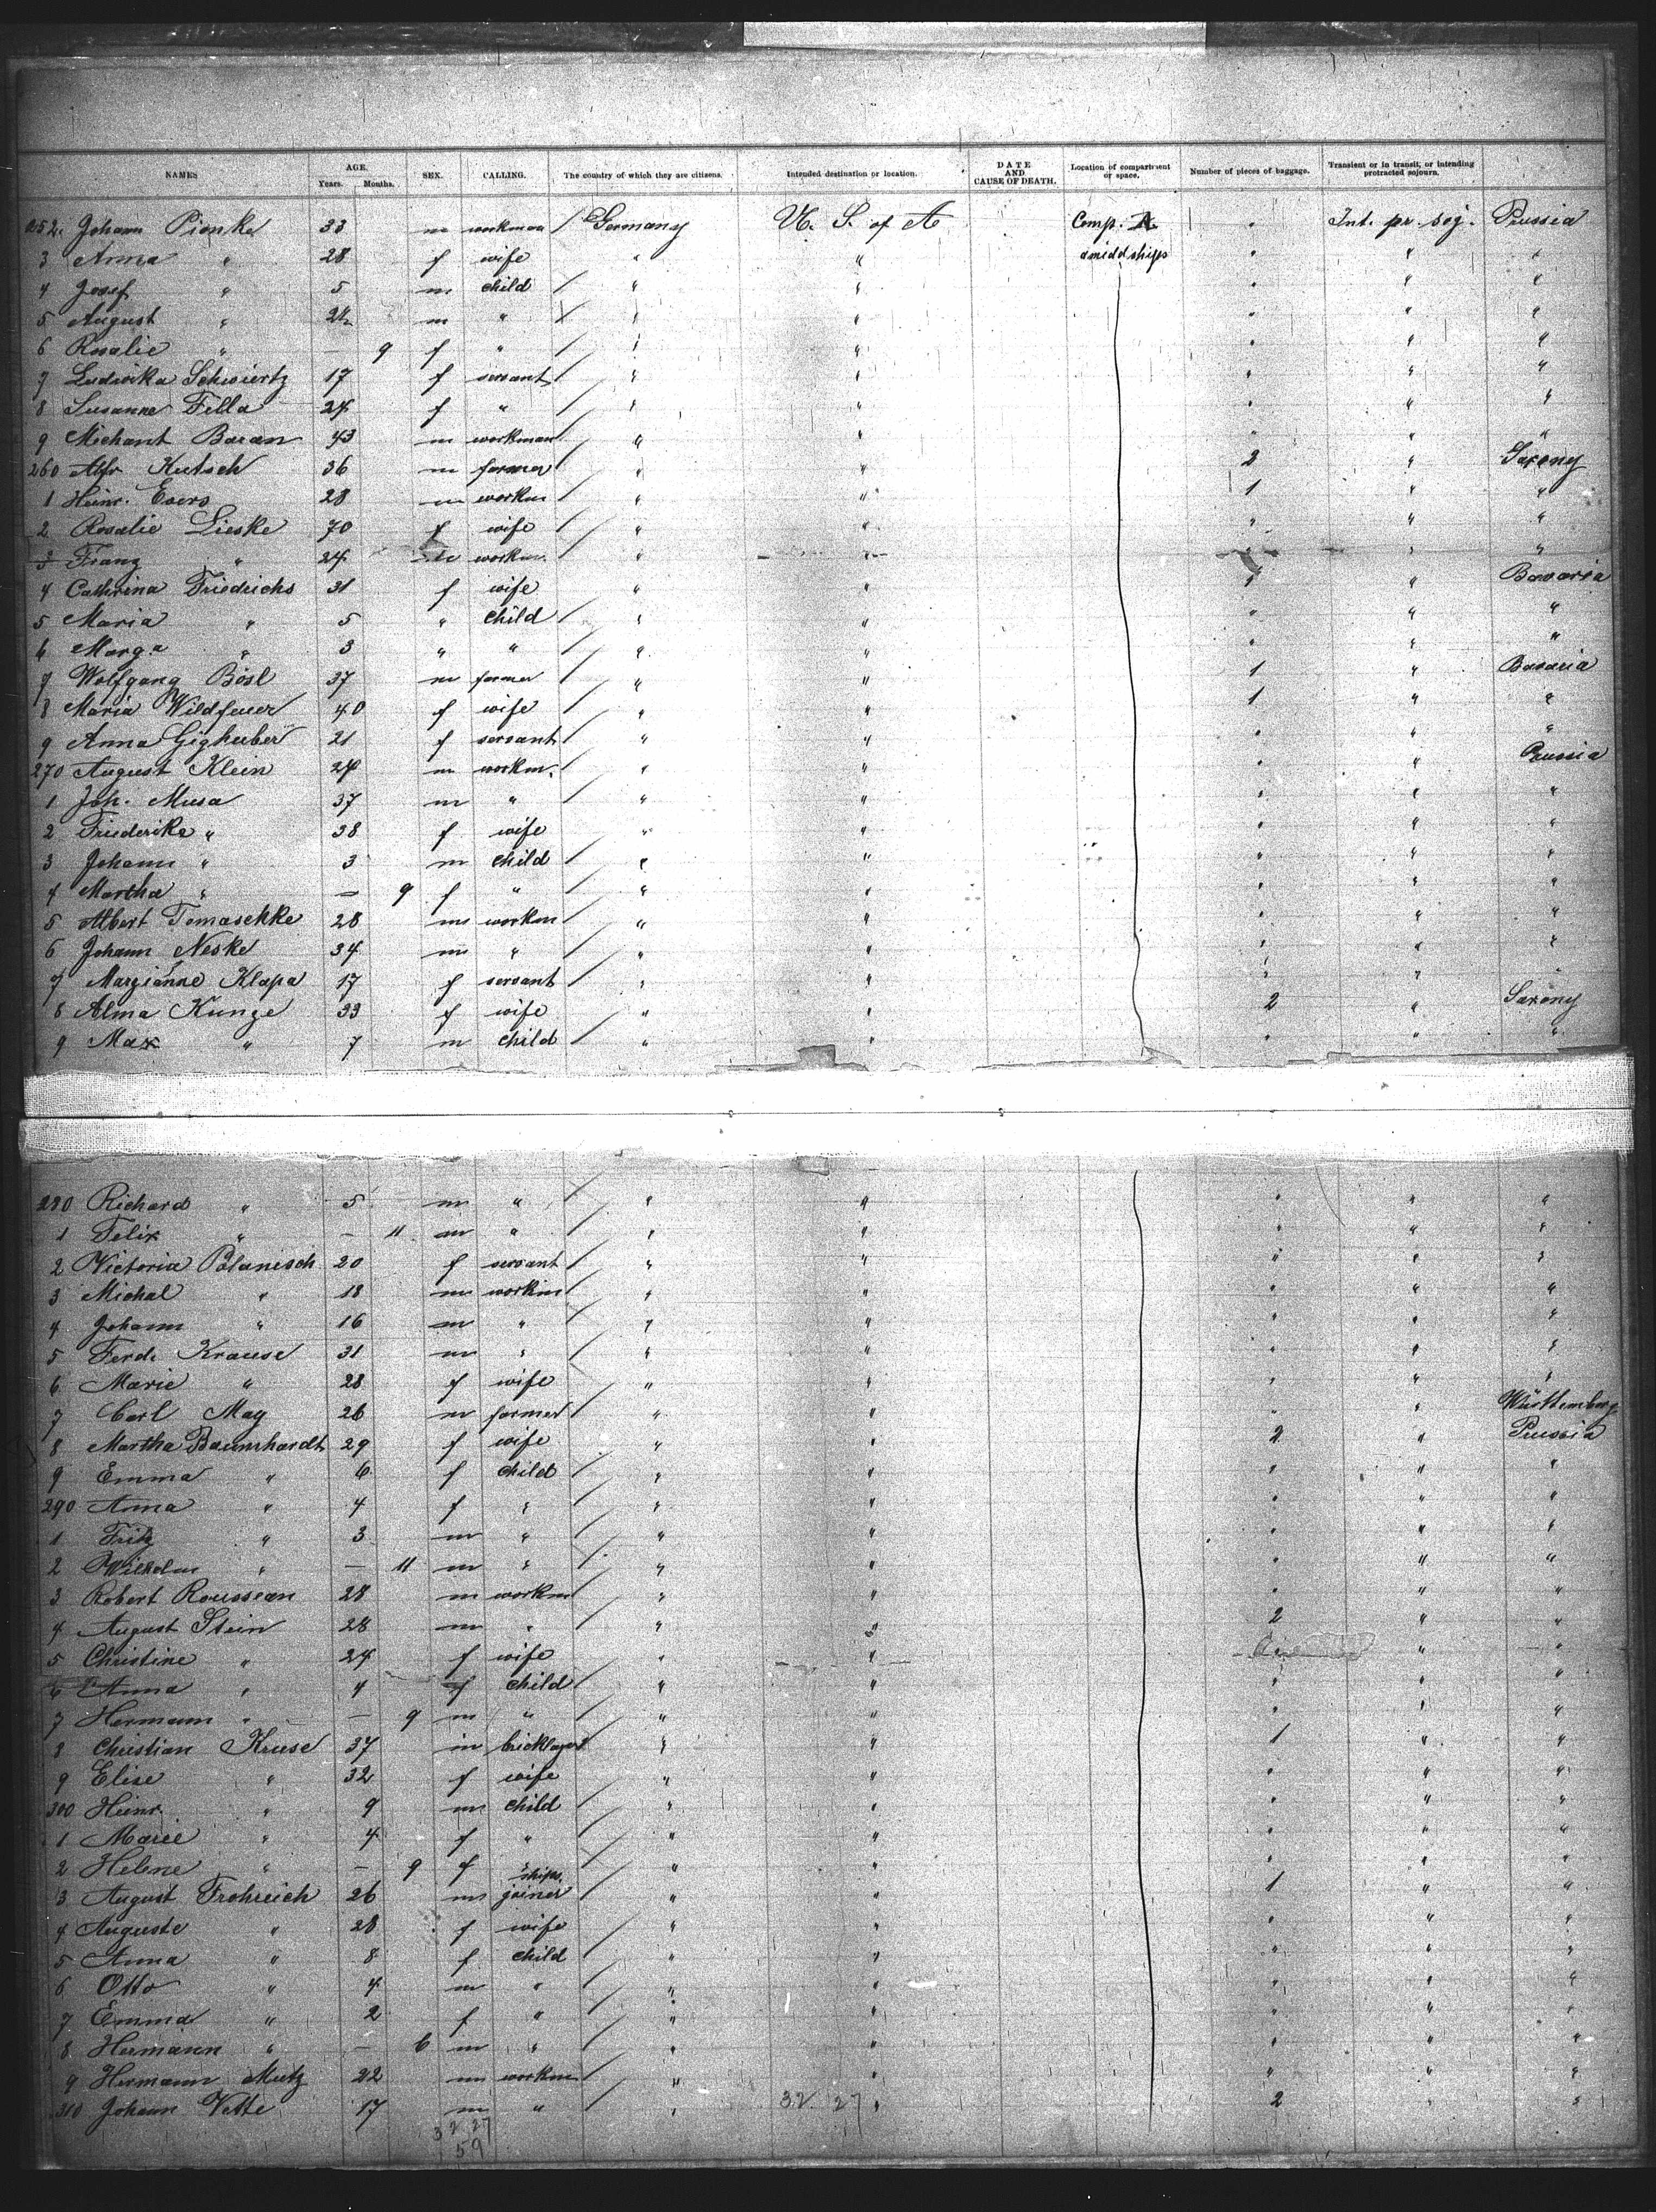 NAMES AGE. Years. Months. SEX. CALLING. The country of which they are citizens. Intended destination or location. DATE AND CAUSE OF DEATH. Location of compartment or space. Number of pieces of baggage. Transient or in transit, or intending protracted sojourn.
252. Johann Pionke 33 m workman / Germany U. S. of A Comp. A. " Int. pr. soj. Prussia
3 Anna " 28 f wife " " amiddships " " "
4 Josef " 5 m child / " " " " "
5 August " 2½ m " / " " " " "
6 Rosalie " — 9 f " / " " " " "
7 Ludwika Schwiertz 17 f servant / " " " " "
8 Susanne Fella 24 f " / " " " " "
9 Michant Baran 43 m workman / " " " " "
260 Alfr Kutsch 36 m farmer / " " 2 " Saxony
1 Heinr. Evers 28 m workm / " " 1 " "
2 Rosalie Lieske 70 f wife / " " " " "
3 Franz " 24 m workm. / " " " "
4 Cathrina Friedrichs 31 f wife / " " 1 " Bavaria
5 Maria " 5 " child / " " " " "
6 Marga " 3 " " / " " " " "
7 Wolfgang Bösl 37 m farmer / " " 1 " Bavaria
8 Maria Wildfeuer 40 f wife / " " 1 " "
9 Anna Gighuber 21 f servant / " " " " "
270 August Klein 24 m workm. / " " " " Prussia
1 Joh. Musa 37 m " / " " " " "
2 Friederike " 38 f wife / " " " " "
3 Johann " 3 m child / " " " " "
4 Martha " — 9 f " / " " " " "
5 Albert Tomaschke 28 m workm / " " " " "
6 Johann Neske 34 m " / " " " " "
7 Margianne Klapa 17 f servant / " " " " "
8 Alma Kunze 33 f wife / " " 2 " Saxony
9 Max " 7 m child / " " " " "
280 Richard " 5 m " / " " " " "
1 Felix " — 11 m " / " " " " "
2 Victoria Polanisch 20 f servant / " " " " "
3 Michal " 18 m workm / " " " " "
4 Johann " 16 m " / " " " " "
5 Ferd. Krause 31 m " / " " " " "
6 Marie " 28 f wife / " " " " "
7 Carl May 26 m farmer / " " " " Württemberg
8 Martha Baumhardt 29 f wife / " " 2 " Prussia
9 Emma " 6 f child / " " " " "
290 Anna " 4 f " / " " " " "
1 Fritz " 3 m " / " " " " "
2 Wilhelm " — 11 m " / " " " " "
3 Robert Rousseau 28 m workm / " " " " "
4 August Stein 28 m " / " " 2 " "
5 Christine " 24 f wife / " " " " "
6 Anna " 4 f child / " " " " "
7 Hermann " — 9 m " / " " " " "
8 Christian Kruse 37 m bricklayer / " " 1 " "
9 Elise " 32 f wife / " " " " "
300 Heinr. " 9 m child / " " " " "
1 Marie " 4 f " / " " " " "
2 Helene " — 9 f " / " " " " "
3 August Frohreich 26 m ships joiner / " " 1 " "
4 Auguste " 28 f wife / " " " " "
5 Anna " 8 f child / " " " " "
6 Otto " 4 m " / " " " " "
7 Emma " 2 f " / " " " " "
8 Hermann " — 6 m " / " " " " "
9 Hermann Mutz 22 m workm / " " " " "
310 Johann Vette 17 m " / " " 2 " "
32 27
32 27
59